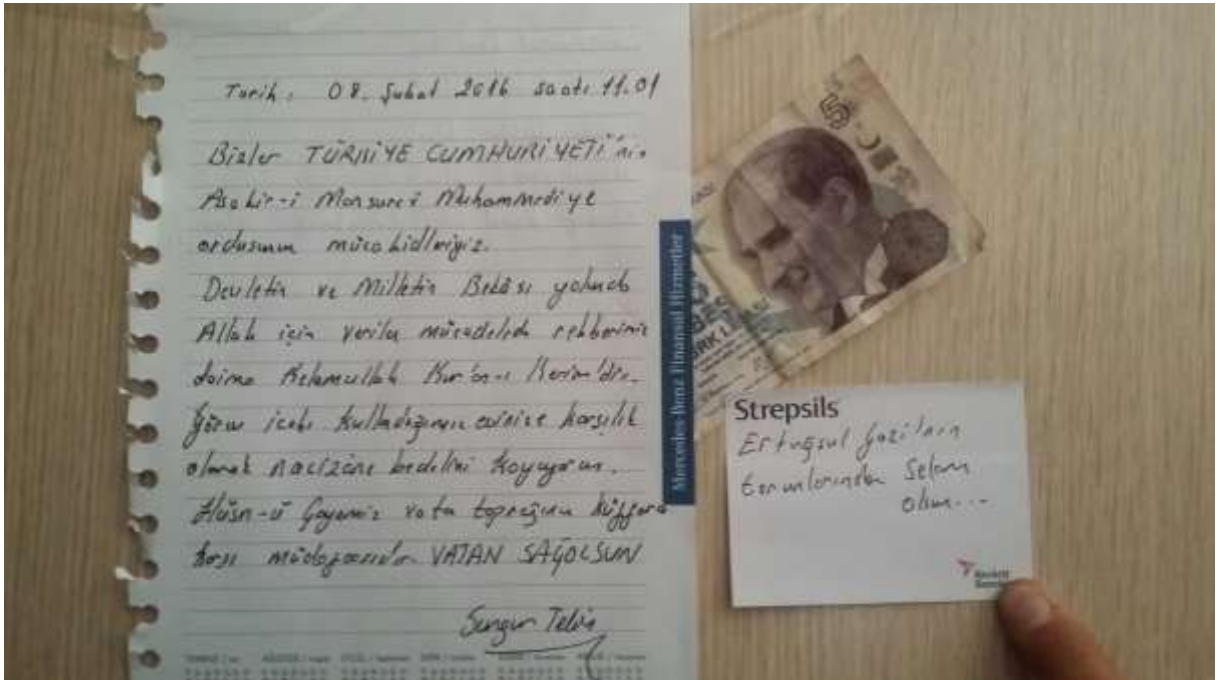 Tarih: 08. Şubat 2016 saati 11.01
Bizler TÜRKİYE CUMHURİYETİ'nin
Asakir-i Mansure-i Muhammediye
ordusunun mücahidleriyiz.
Devletin ve Milletin Bekası yolunda
Allah için verilen mücadelede rehberimiz
daima Kelamullah Kur'an-ı Kerim'dir.
Görev icabı kullandığımız evinize karşılık
olarak nacizane bedelini koyuyorum.
Hüsn-ü Gayemiz vatan toprağının küffara
karşı müdafaasıdır VATAN SAĞOLSUN
Mercedes-Benz Finansal Hizmetler
5
Strepsils
Ertuğrul Gazi'nin
torunlarından Selam
olsun...
Reckitt
Benckiser